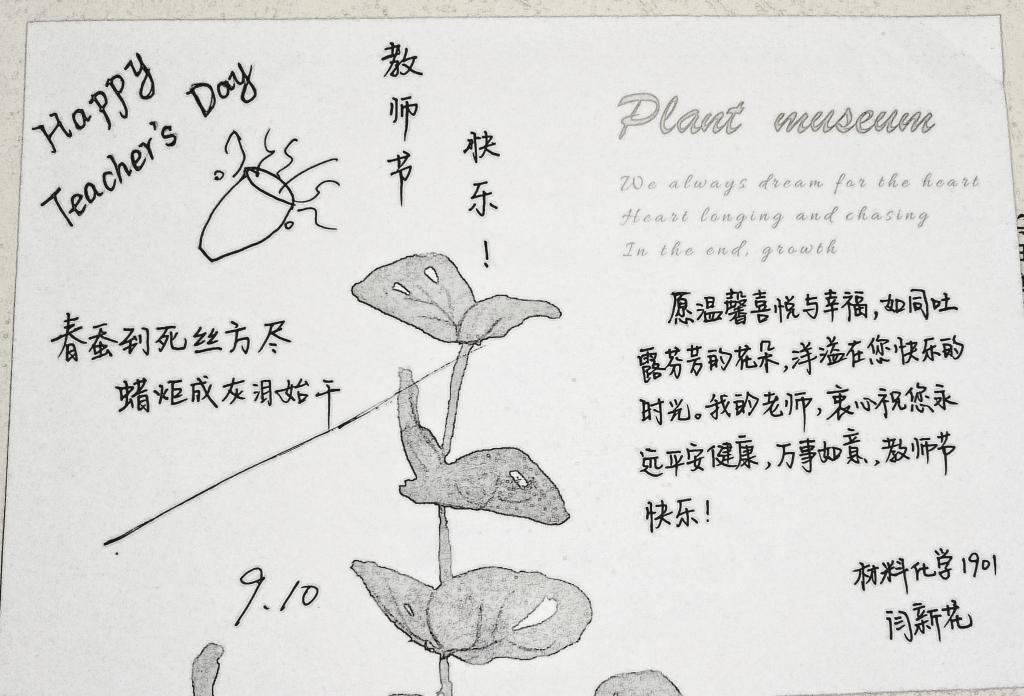 Happy
Teacher's Day
教师节
快乐!
春蚕到死丝方尽
蜡炬成灰泪始干
9.10
Plant museum
We always dream for the heart
Heart longing and chasing
In the end, growth
愿温馨喜悦与幸福,如同吐
露芬芳的花朵,洋溢在您快乐的
时光。我的老师,衷心祝您永
远平安健康,万事如意,教师节
快乐!
材料化学1901
闫新花